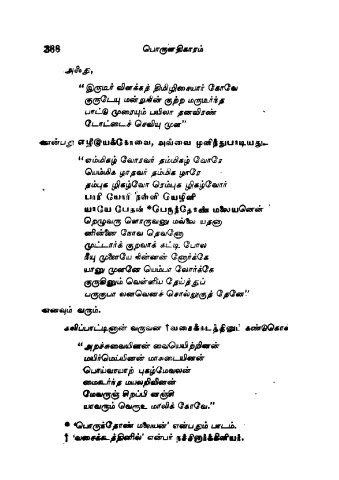 388 பொருளதிகாரம்
அஃது,
“இருமர் விளக்கத் திமிழிசையார் கோவே
குருடேயு மன்றுநின் குற்ற மருமர்ந்த
பாட்டு முரையும் பயிலா தனவிரண்
டோட்டைச் செவியு முள”
என்பது எழிற்றூயக்கோவை, அவ்வை முனிந்துபாடியது.
“எம்மிகழ் வோரவர் தம்மிகழ் வோரே
யெம்மிக ழாதவர் தம்மிக ழாரே
தம்புக ழிகழ்வோ ரெம்புக ழிகழ்வோர்
பாரி யோரி நள்ளி யெழினி
யாயே பேகன் *பெருந்தோண் மலையனென்
றெழுவரு ளொருவனு மல்லை யதனா
னின்னை நோவ தெவனோ
முட்டார்க் குறவாக் கட்டி போல
நீயு முளையே நின்னன் னோர்க்கே
யானு முளனே யெம்பா லோர்க்கே
குருகினும் வெள்ளிய தேய்த்துப்
பருகுபா லனவென் சொல்லுகுத் தேனே”
எனவும் வரும்.
கலிப்பாட்டினுள் வருவன †வசைக்கூடத்தினுட் கண்டுகொள்க
“அறச்சுவையினன் வையெயிற்றினன்
மயிர்மெய்யினன் மாசுடையினன்
பொய்வாயாற் புகழ்மேவலன்
மைகூர்ந்த மயலறிவினன்
மேவருஞ் சிறப்பி னஞ்சி
யாவரும் வெரூஉ மாவிக் கோவே.”
* ‘பொருந்தோண் மலையன்’ என்பதும் பாடம்.
† ‘வசைக்கூத்தினில்’ என்பர் நச்சினார்க்கினியர்.